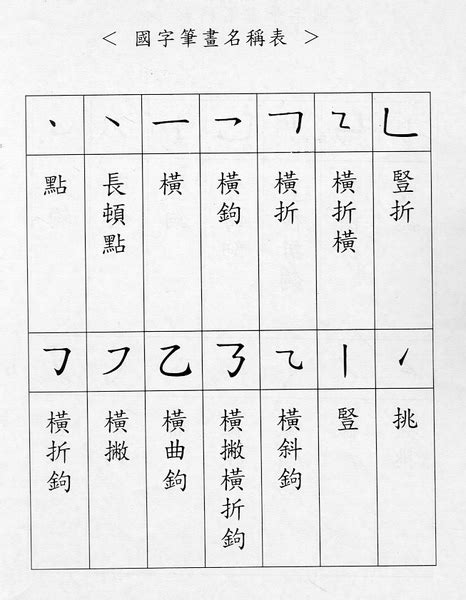 < 國字筆畫名稱表 >
㇔ ㇔ ㇐ ㇖ ㇕ ㇅ ㇗
點 長頓點 橫 橫鉤 橫折 橫折橫 豎折
㇆ ㇇ ㇠ ㇡ ㇈ ㇑ ㇀
橫折鉤 橫撇 橫曲鉤 橫撇橫折鉤 橫斜鉤 豎 挑